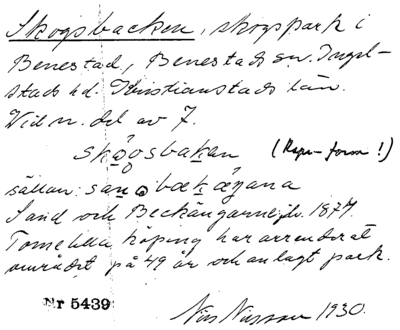 Skogsbacken, skogspark i
Benestad, Benestads sn. Ingel-
stads hd. Kristianstads län.
Vid n. del av 7.
skǫosbakan (Rspr-form!)
sällan: san o bækæŋana
Sand och Beckängarne jb. 1877.
Tomelilla köping har arrenderat
området på 49 år och anlagt park.
Nr 5439
Nils Nilsson 1930.